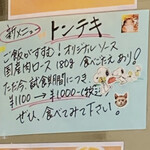 新メニュー トンテキ
ご飯がすすむ!オリジナルソース
国産肉ロース 180g 食べごたえあり!
ただ今、試食期間につき
¥1100 → ¥1,000-(税込)
ぜひ、食べてみて下さい。